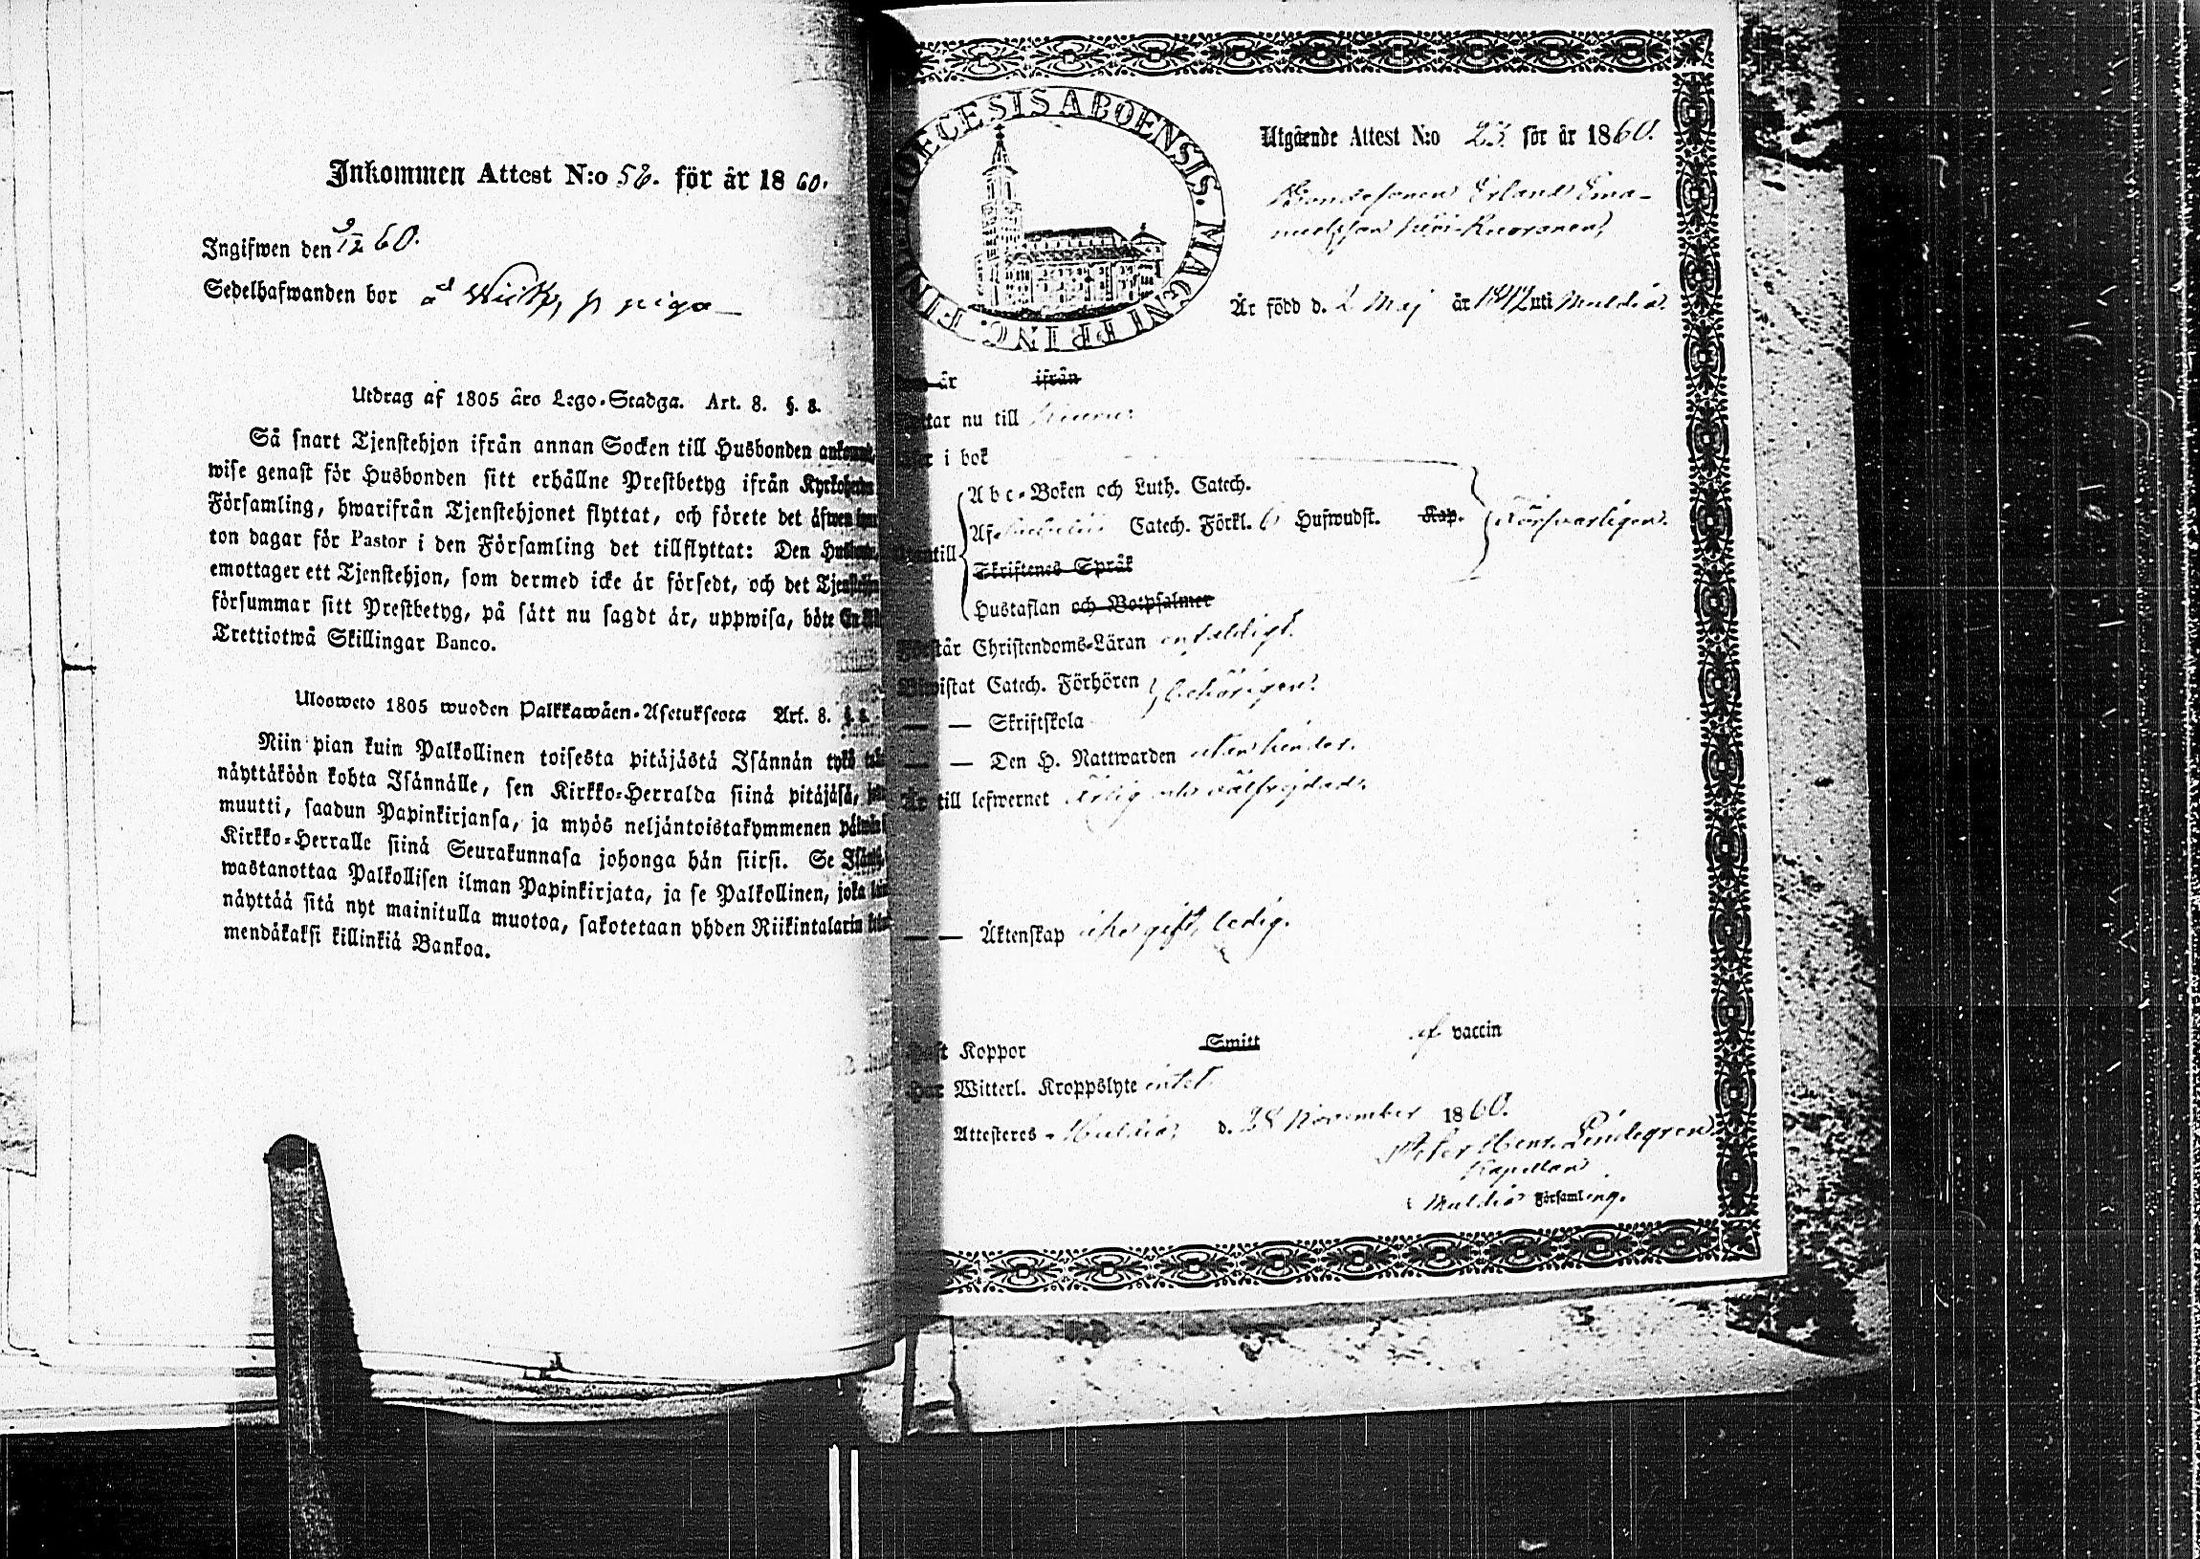 Inkommen Attest N:o 56. för år 1860.
Ingifwen den 9/12 60.
Sedelhafwanden bor å piga
Utdrag af 1805 års Lego-Stadga. Art. 8. §. 8.
Så snart Tjenstehjon ifrån annan Socken till Husbonden
wise genast för Husbonden sitt erhållne Prestbetyg ifrån
Församling, hwarifrån Tjenstehjonet flyttat, och förete det
ton dagar för Pastor i den Församling det tillflyttat: Den
emottager ett Tjenstehjon, som dermed icke är försedt, och det
försummar sitt Prestbetyg, på sätt nu sagdt är, uppwisa, böte
Trettiotwå Skillingar Banco.
Ulosweto 1805 wuoden Palkkawäen-Asetuksesta Art. 8. §. 8.
Niin pian kuin Palkollinen toisesta pitäjästä Isännän tykö
näyttäköön kohta Isännälle, sen Kirkko-Herralda siinä pitäjäsä,
muutti, saadun Papinkirjansa, ja myös neljäntoistakymmenen
Kirkko-Herralle siinä Seurakunnasa johonga hän siirsi. Se
wastanottaa Palkollisen ilman Papinkirjata, ja se Palkollinen, joka
näyttää sitä nyt mainitulla muotoa, sakotetaan yhden Riikintalarin
mendäkaksi killinkiä Bankoa.
DIOECESIS ABOENSIS. MAGNI PRINC. FINL.
Utgående Attest N:o 23 för år 1860.
Bondesonen Erland Ema-
nuelsson
Är född d. 2 Maj år 1842 uti Muldia.
är ifrån
nu till
i bok
Abc-Boken och Luth. Catech.
Af Catech. Förkl. 6 Hufwudst. Kap. försvarligen.
Skriftenes Språk
Hustaflan och Botpsalmer
Förstår Christendoms-Läran enfaldigt.
Biwistat Catech. Förhören behörigen.
— — Skriftskola
— — Den H. Nattwarden utan hinder.
Är till lefwernet ärlig och välfrejdad.
— — Äktenskap ledig.
Haft Koppor Smitt af vaccin
Har Witterl. Kroppslyte intet.
Attesteres Muldia, d. 28 November 1860.
Peter Henr. Lindegren
Kapellan
i Muldia Församling.